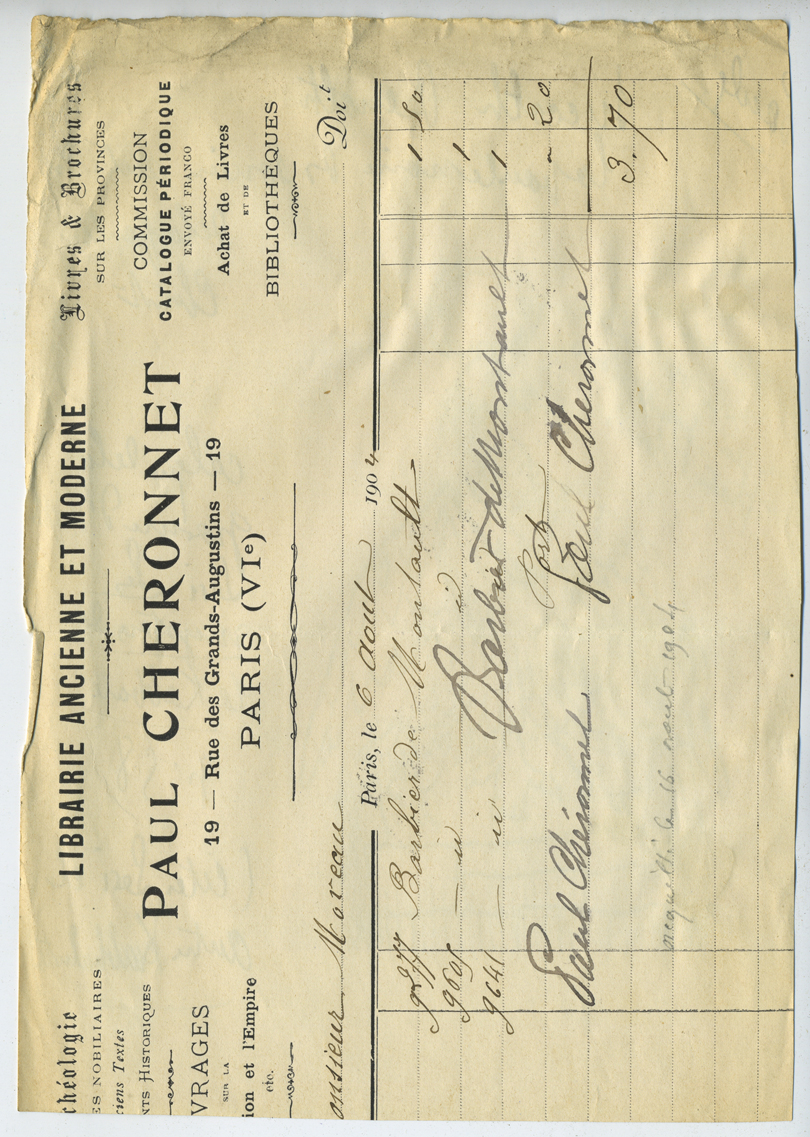 chéologie
ES NOBILIAIRES
ciens Textes
NTS HISTORIQUES
VRAGES
SUR LA
ion et l'Empire
etc.
LIBRAIRIE ANCIENNE ET MODERNE
PAUL CHERONNET
19 — Rue des Grands-Augustins — 19
PARIS (VIe)
Livres & Brochures
SUR LES PROVINCES
COMMISSION
CATALOGUE PÉRIODIQUE
ENVOYÉ FRANCO
Achat de Livres
ET DE
BIBLIOTHÈQUES
onsieur Moreau Doit
Paris, le 6 Aout 1904
Barbier de Montault 1 50
9605 — id — id 1
9641 — id Barbier de Montault 1
Port - 20
Paul Cheronnet Paul Cheronnet
3.70
acquitté le 16 aout 1904